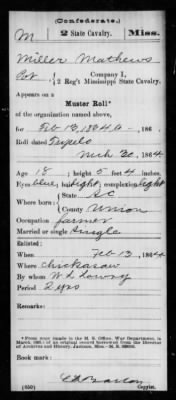 (Confederate.)
M 2 State Cavalry. Miss.
Miller Mathews
Pvt, Company I,
2 Reg't Mississippi State Cavalry.
Appears on a
Muster Roll*
of the organization named above,
for Feb 13, 1864 to , 186 .
Roll dated Tupelo
Mch 30, 1864
Age 18; height 5 feet 4 inches.
Eyes blue, hair light, complexion light
Where born: State SC
County Union
Occupation farmer
Married or single Single
Enlisted:
When Feb 13, 1864
Where Chickasaw
By whom W. L. Lowry
Period 2 yrs
Remarks:
*From copy made in the M. S. Office, War Department, in
of an original record borrowed from the Director
of Archives and History, Jackson, Miss.
Book mark:
(650) Copyist.